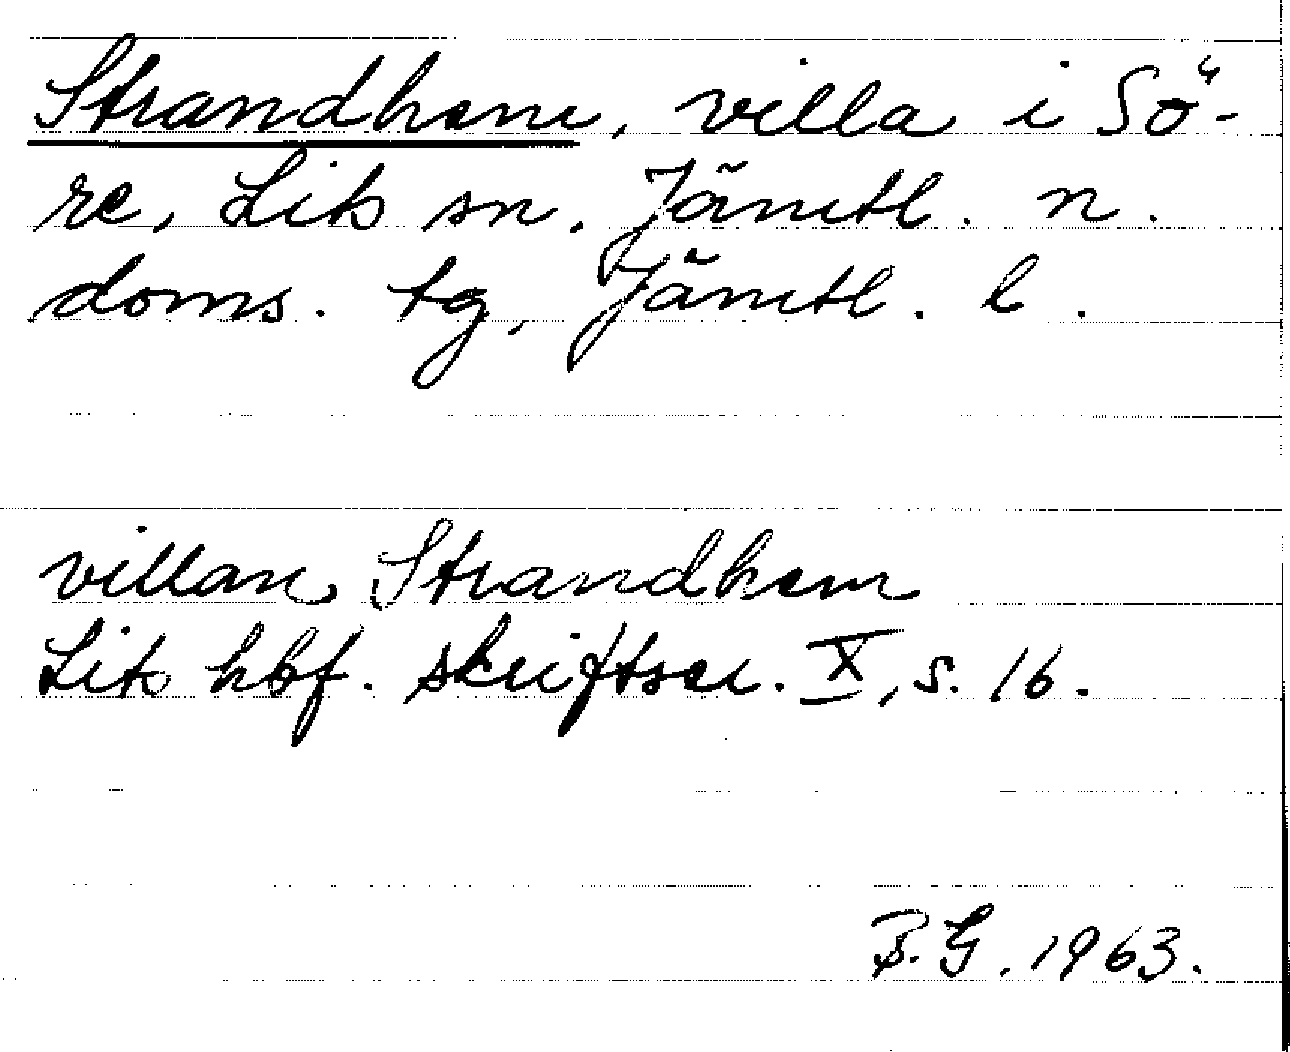 Strandhem, villa i Sö-
re, Lits sn. Jämtl. n.
doms. tg, Jämtl. l.
villan Strandhem
Lits hbf. skriftser. X, s. 16.
B.G. 1963.